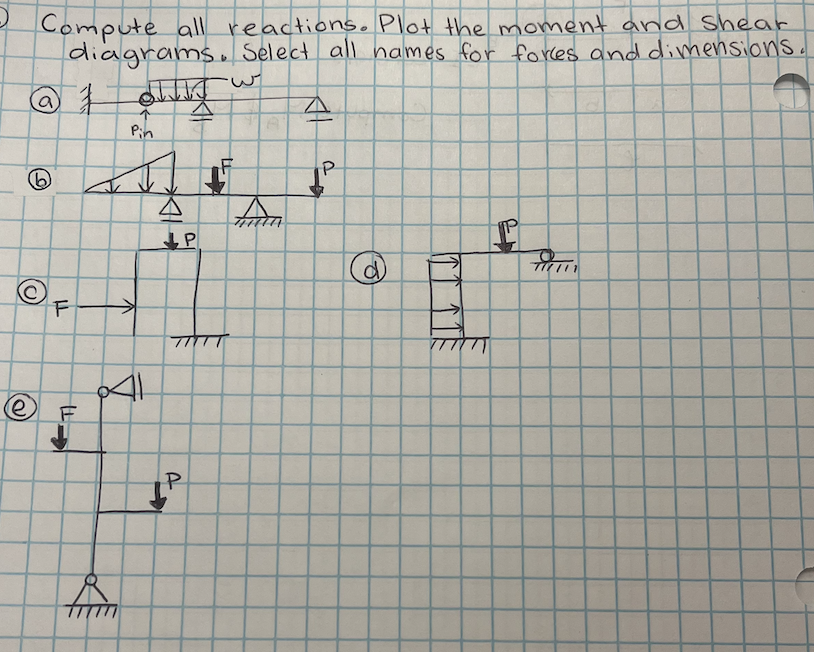 Compute all reactions. Plot the moment and shear
diagrams. Select all names for forces and dimensions.
a
w
Pin
b
F
P
c
P
F
d
P
e
F
P